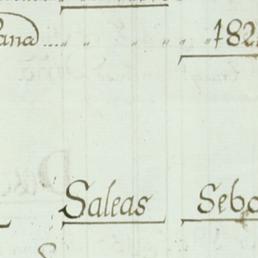 ana) .... " " " " " 182
Saleas Sebo